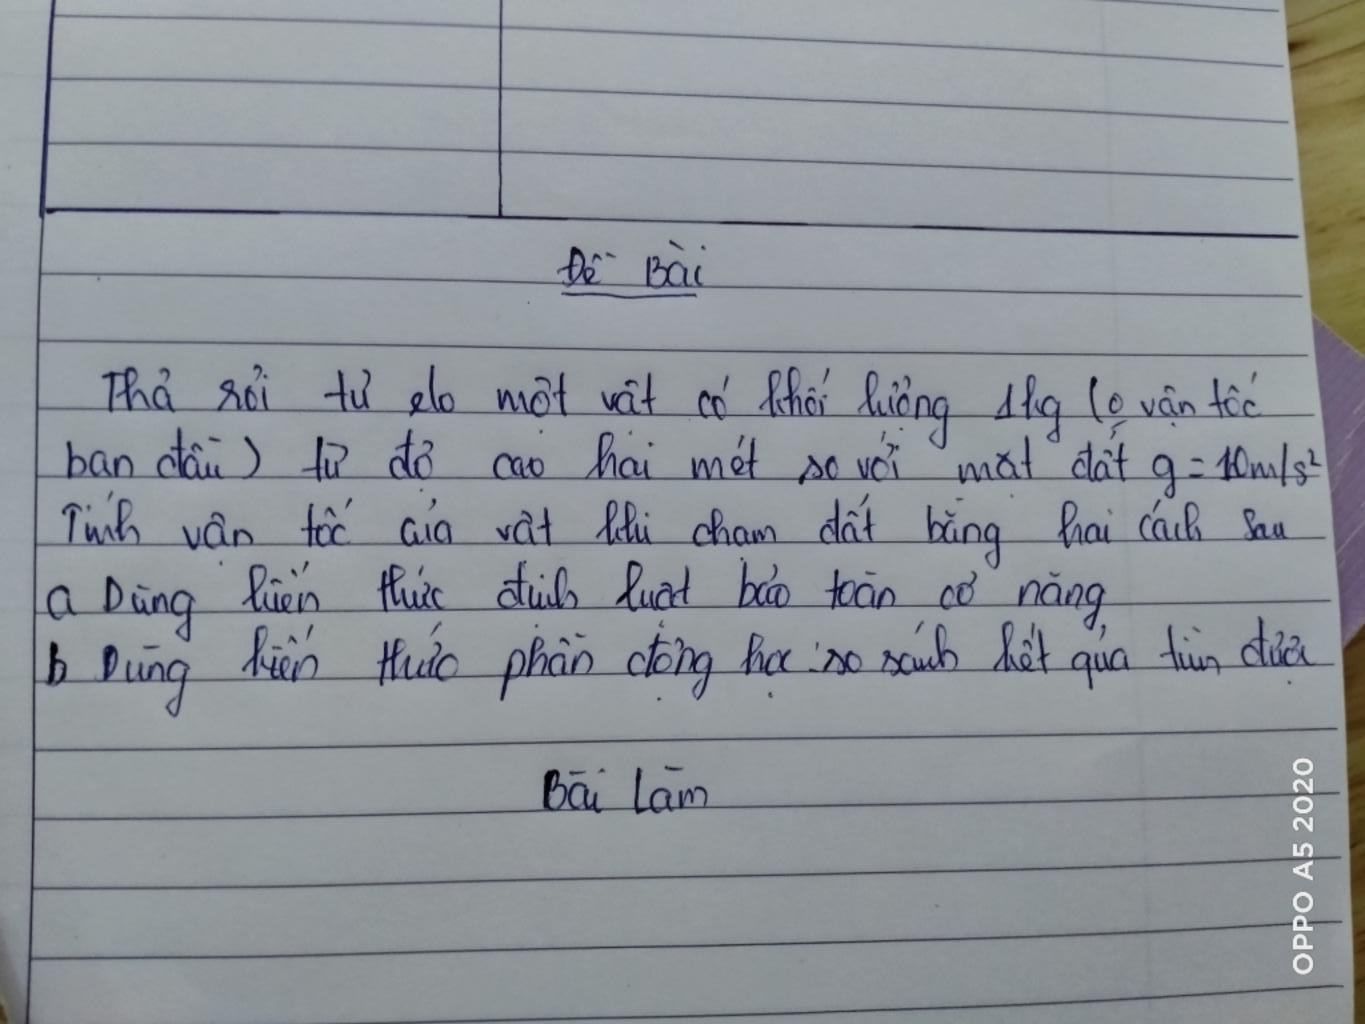 Đề Bài
Thả rơi tự do một vật có khối lượng 1kg (0 vận tốc
ban đầu) từ độ cao hai mét so với mặt đất g = 10m/s²
Tính vận tốc của vật khi chạm đất bằng hai cách sau
a Dùng kiến thức định luật bảo toàn cơ năng
b Dùng kiến thức phần động học so sánh kết quả tìm được
Bài Làm
OPPO A5 2020